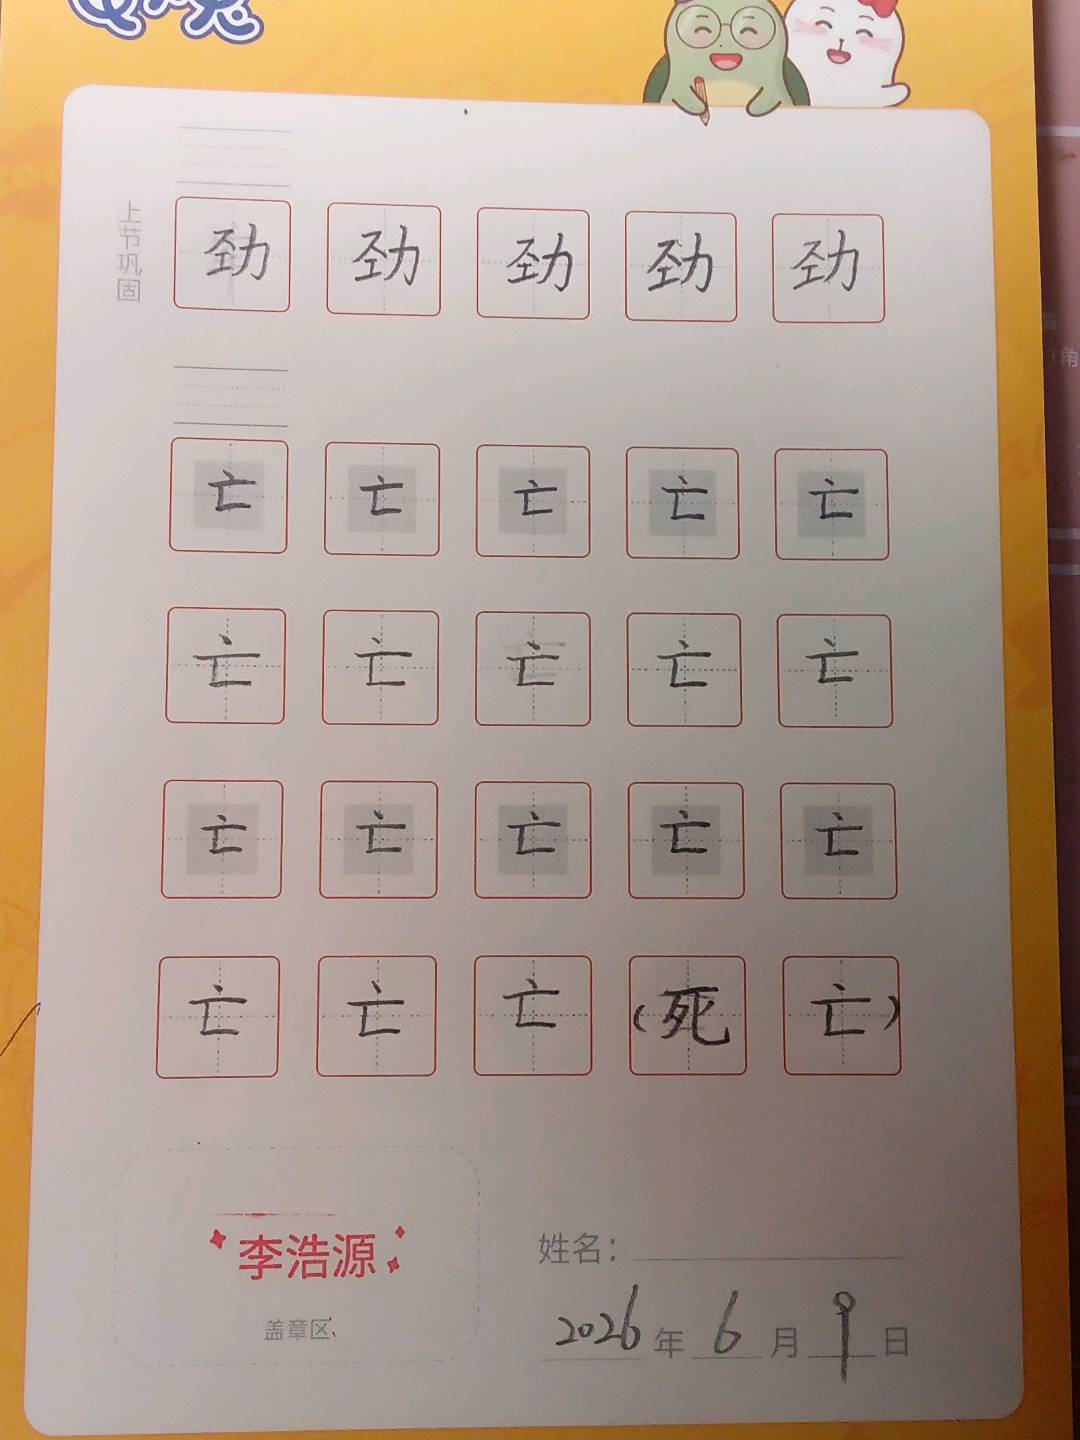 上节巩固
劲 劲 劲 劲 劲
亡 亡 亡 亡 亡
亡 亡 亡 亡 亡
亡 亡 亡 亡 亡
亡 亡 亡 (死 亡)
李浩源
盖章区
姓名:
2026年 6月 9日